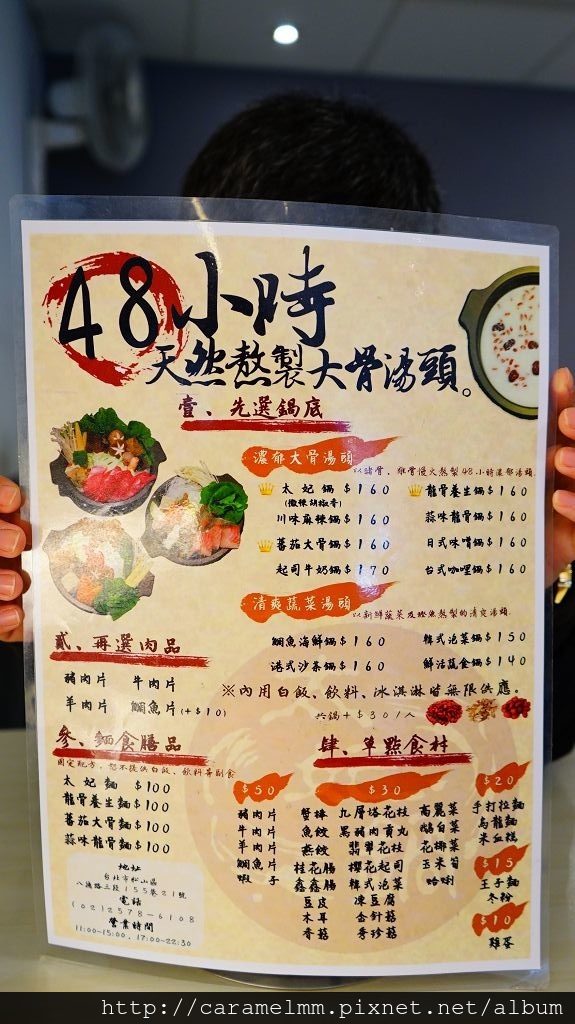 48小時
天然熬製大骨湯頭。
壹、先選鍋底
濃郁大骨湯頭
以豬骨、雞骨慢火熬製48小時濃郁湯頭.
太妃鍋$160
(微辣胡椒香)
川味麻辣鍋$160
蕃茄大骨鍋$170
起司牛奶鍋$170
龍骨養生鍋$160
蒜味龍骨鍋$160
日式味噌鍋$160
台式咖哩鍋$160
清爽蔬菜湯頭
以新鮮蔬菜及鰹魚熬製的清爽湯頭.
鯛魚海鮮鍋$160
港式沙茶鍋$160
韓式泡菜鍋$150
鮮活蔬食鍋$140
※內用白飯、飲料、冰淇淋皆無限供應。
共鍋+$30/人
貳、再選肉品
豬肉片 牛肉片
羊肉片 鯛魚片(+$10)
參、麵食膳品
固定配方,恕不提供白飯、飲料等副食
太妃麵$100
龍骨養生麵$100
蕃茄大骨麵$100
蒜味龍骨麵$100
地址
台北市松山區
八德路三段155巷21號
電話
(02)2578-6108
營業時間
11:00~15:00、17:00~22:30
肆、單點食材
$50
豬肉片
牛肉片
羊肉片
鯛魚片
蝦子
$30
蟹棒
魚餃
燕餃
桂花腸
鑫鑫腸
豆皮
木耳
香菇
九層塔花枝
黑豬肉貢丸
翡翠花枝
櫻花起司
韓式泡菜
凍豆腐
金針菇
秀珍菇
高麗菜
大白菜
花椰菜
玉米筍
蛤蜊
$20
手打拉麵
烏龍麵
米血糕
$15
王子麵
冬粉
$10
雞蛋
http://caramelmm.pixnet.net/album